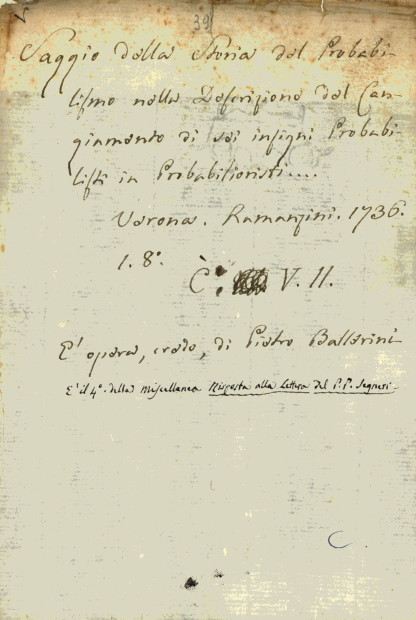 39
Saggio della Storia del Probabi-
lismo nella Descrizione del Can-
giamento di sei insigni Probabi-
listi in Probabilioristi....
Verona. Ramanzini. 1736.
1. 8°.
C: V. 11.
E' opera, credo, di Pietro Ballerini
E' il 4°. della Miscellanea Risposta alla Lettera del P. P. Segneri.
C.